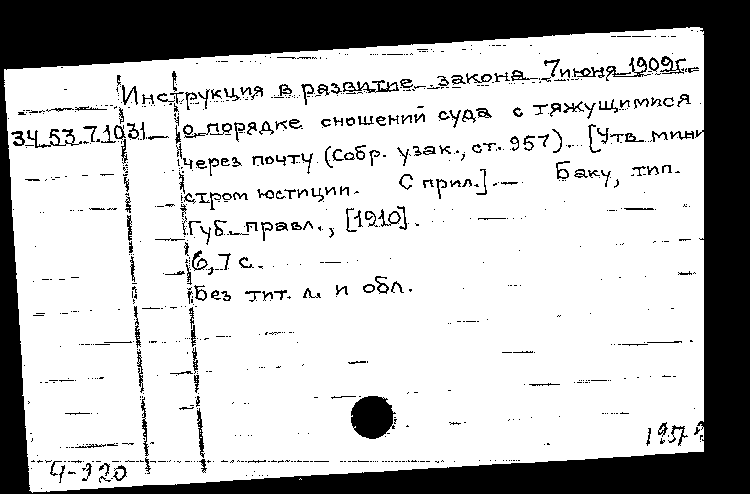 Инструкция в развитие закона 7 июня 1909г.
34.53.7.1031 о порядке сношений суда с тяжущимися
через почту (Собр. узак., ст. 957). [Утв. мини
стром юстиции. С прил.] — Баку, тип.
Губ. правл., [1910].
6,7 с.
Без тит. л. и обл.
4-920